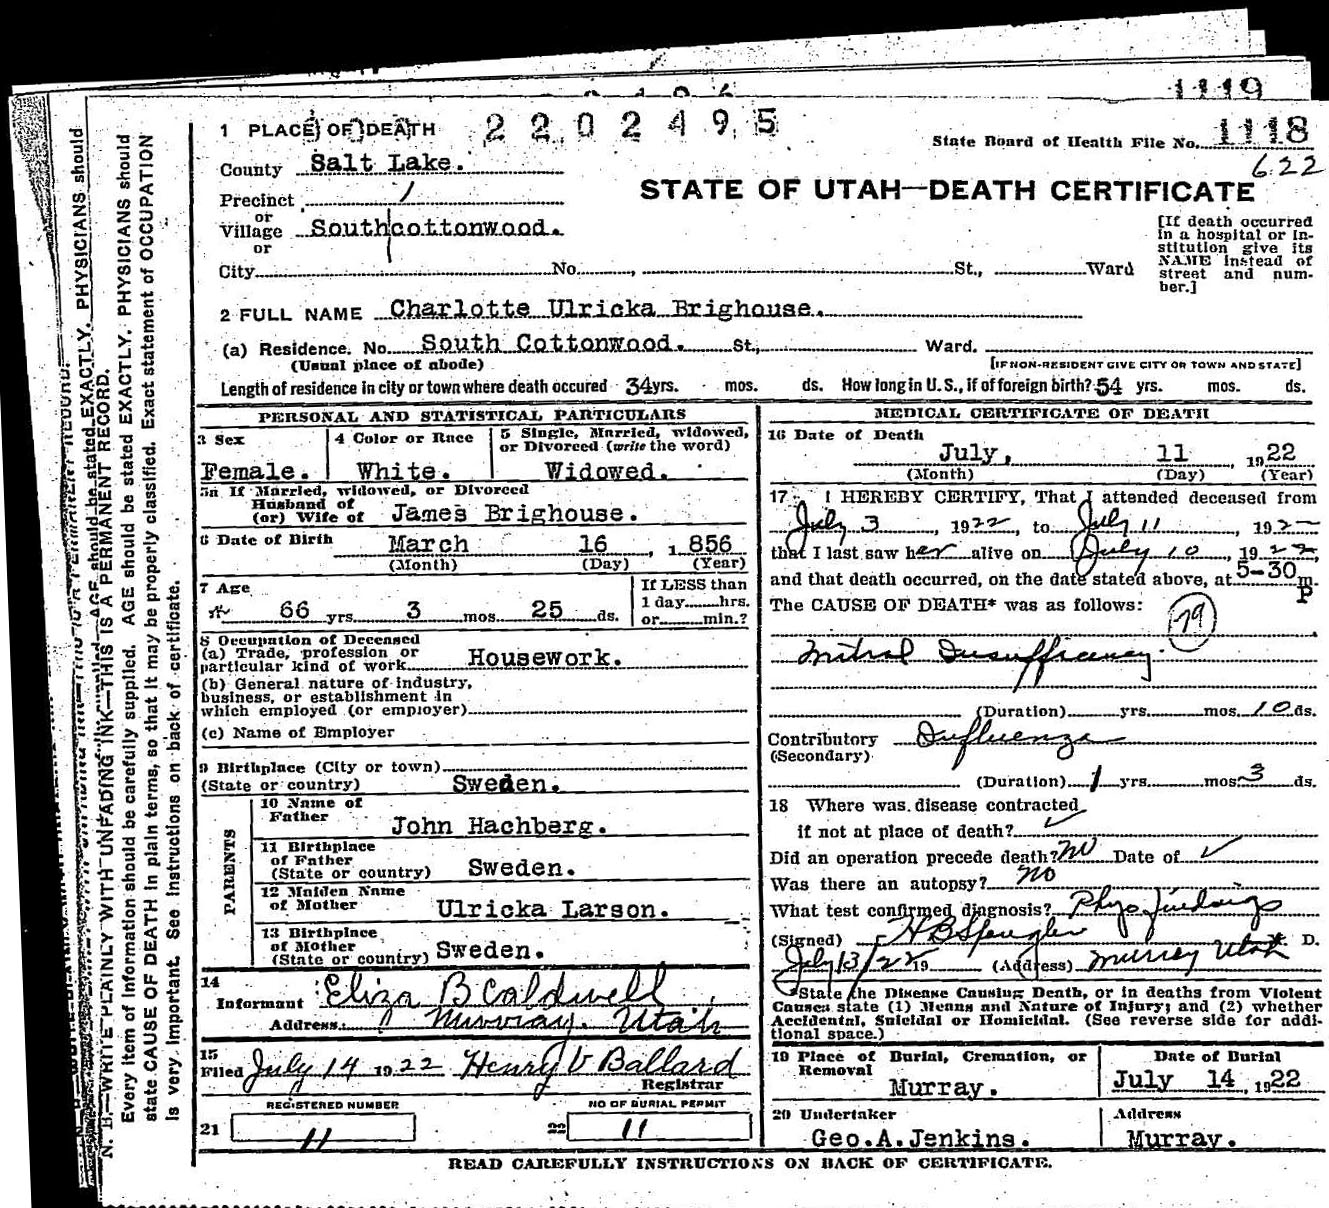 1119
1 PLACE OF DEATH
2202495
State Board of Health File No. 1118
622
County Salt Lake.
STATE OF UTAH—DEATH CERTIFICATE
Precinct 1
or
Village Southcottonwood.
or
City No. , St., Ward
[If death occurred
in a hospital or in-
stitution give its
NAME instead of
street and num-
ber.]
2 FULL NAME Charlotte Ulricka Brighouse.
(a) Residence. No. South Cottonwood. St., Ward.
(Usual place of abode) [IF NON-RESIDENT GIVE CITY OR TOWN AND STATE]
Length of residence in city or town where death occured 34 yrs. mos. ds. How long in U. S., if of foreign birth? 54 yrs. mos. ds.
PERSONAL AND STATISTICAL PARTICULARS
3 Sex
Female.
4 Color or Race
White.
5 Single, Married, widowed,
or Divorced (write the word)
Widowed.
5a If Married, widowed, or Divorced
Husband of
(or) Wife of James Brighouse.
6 Date of Birth March 16, 1856
(Month) (Day) (Year)
7 Age
66 yrs. 3 mos. 25 ds.
If LESS than
1 day hrs.
or min.?
8 Occupation of Deceased
(a) Trade, profession or
particular kind of work Housework.
(b) General nature of industry,
business, or establishment in
which employed (or employer)
(c) Name of Employer
9 Birthplace (City or town)
(State or country) Sweden.
PARENTS
10 Name of
Father
John Hachberg.
11 Birthplace
of Father
(State or country) Sweden.
12 Maiden Name
of Mother Ulricka Larson.
13 Birthplace
of Mother
(State or country) Sweden.
14
Informant Eliza B Caldwell
Address. Murray. Utah
15
Filed July 14 1922 Henry V Ballard
Registrar
REGISTERED NUMBER
21 11
NO OF BURIAL PERMIT
22 11
MEDICAL CERTIFICATE OF DEATH
16 Date of Death
July, 11, 1922
(Month) (Day) (Year)
17 I HEREBY CERTIFY, That I attended deceased from
July 3, 1922, to July 11, 192
that I last saw her alive on July 10, 1922,
and that death occurred, on the date stated above, at 5-30 m.
P
The CAUSE OF DEATH* was as follows:
79
Mitral Insufficiency.
(Duration) yrs. mos. 10 ds.
Contributory Influenza
(Secondary)
(Duration) 1 yrs. mos. 3 ds.
18 Where was disease contracted
if not at place of death? ✓
Did an operation precede death? No Date of ✓
Was there an autopsy? no
What test confirmed diagnosis? Phys findings
(Signed) H B Spengler M. D.
July 13/22 19 (Address) Murray Utah
*State the Disease Causing Death, or in deaths from Violent
Causes state (1) Means and Nature of Injury; and (2) whether
Accidental, Suicidal or Homicidal. (See reverse side for addi-
tional space.)
19 Place of Burial, Cremation, or
Removal
Murray.
Date of Burial
July 14, 1922
20 Undertaker
Geo.A.Jenkins.
Address
Murray.
READ CAREFULLY INSTRUCTIONS ON BACK OF CERTIFICATE.
N. B.—WRITE PLAINLY WITH UNFADING INK—THIS IS A PERMANENT RECORD.
Every item of information should be carefully supplied. AGE should be stated EXACTLY. PHYSICIANS should
state CAUSE OF DEATH in plain terms, so that it may be properly classified. Exact statement of OCCUPATION
is very important. See instructions on back of certificate.